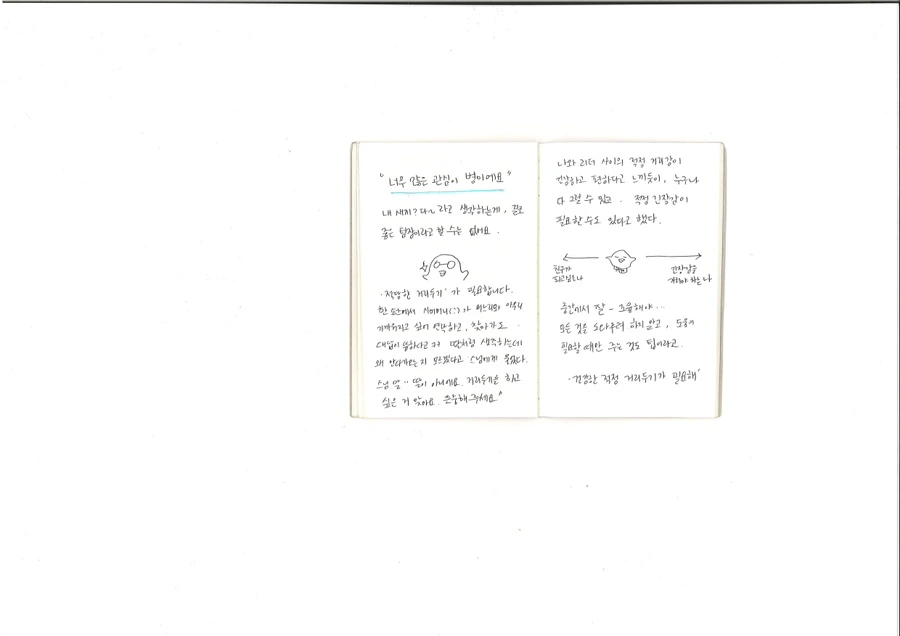 " 너무 많은 관심이 병이에요 "
내 새끼? 다~ 라고 생각하는게, 꼭
좋은 팀장이라고 할 수는 없어요.
'적당한 거리두기'가 필요합니다.
한 소스에서 시어머니(:)가 며느리와
가까워지고 싶어 연락하고, 찾아가도
대답이 뜸하다고 ㅋㅋ 딸처럼 생각하는데
왜 안다가오는지 모르겠다고 스님에게 물었다.
스님 왈 " 딸이 아니에요. 거리두기를 하고
싶은 거 같아요. 존중해주세요"
나와 리더 사이의 적정 거리감이
건강하고 편하다고 느끼듯이, 누구나
다 그럴 수 있고. 적정 긴장감이
필요할 수도 있다고 했다.
친구가
되고싶은 나
긴장감을
줘야 하는 나
중간에서 잘 - 조율해야...
모든 것을 도와주려 하지 않고, 도움이
필요할 때만 주는 것도 팁이라고.
'건강한 적정 거리두기가 필요해'